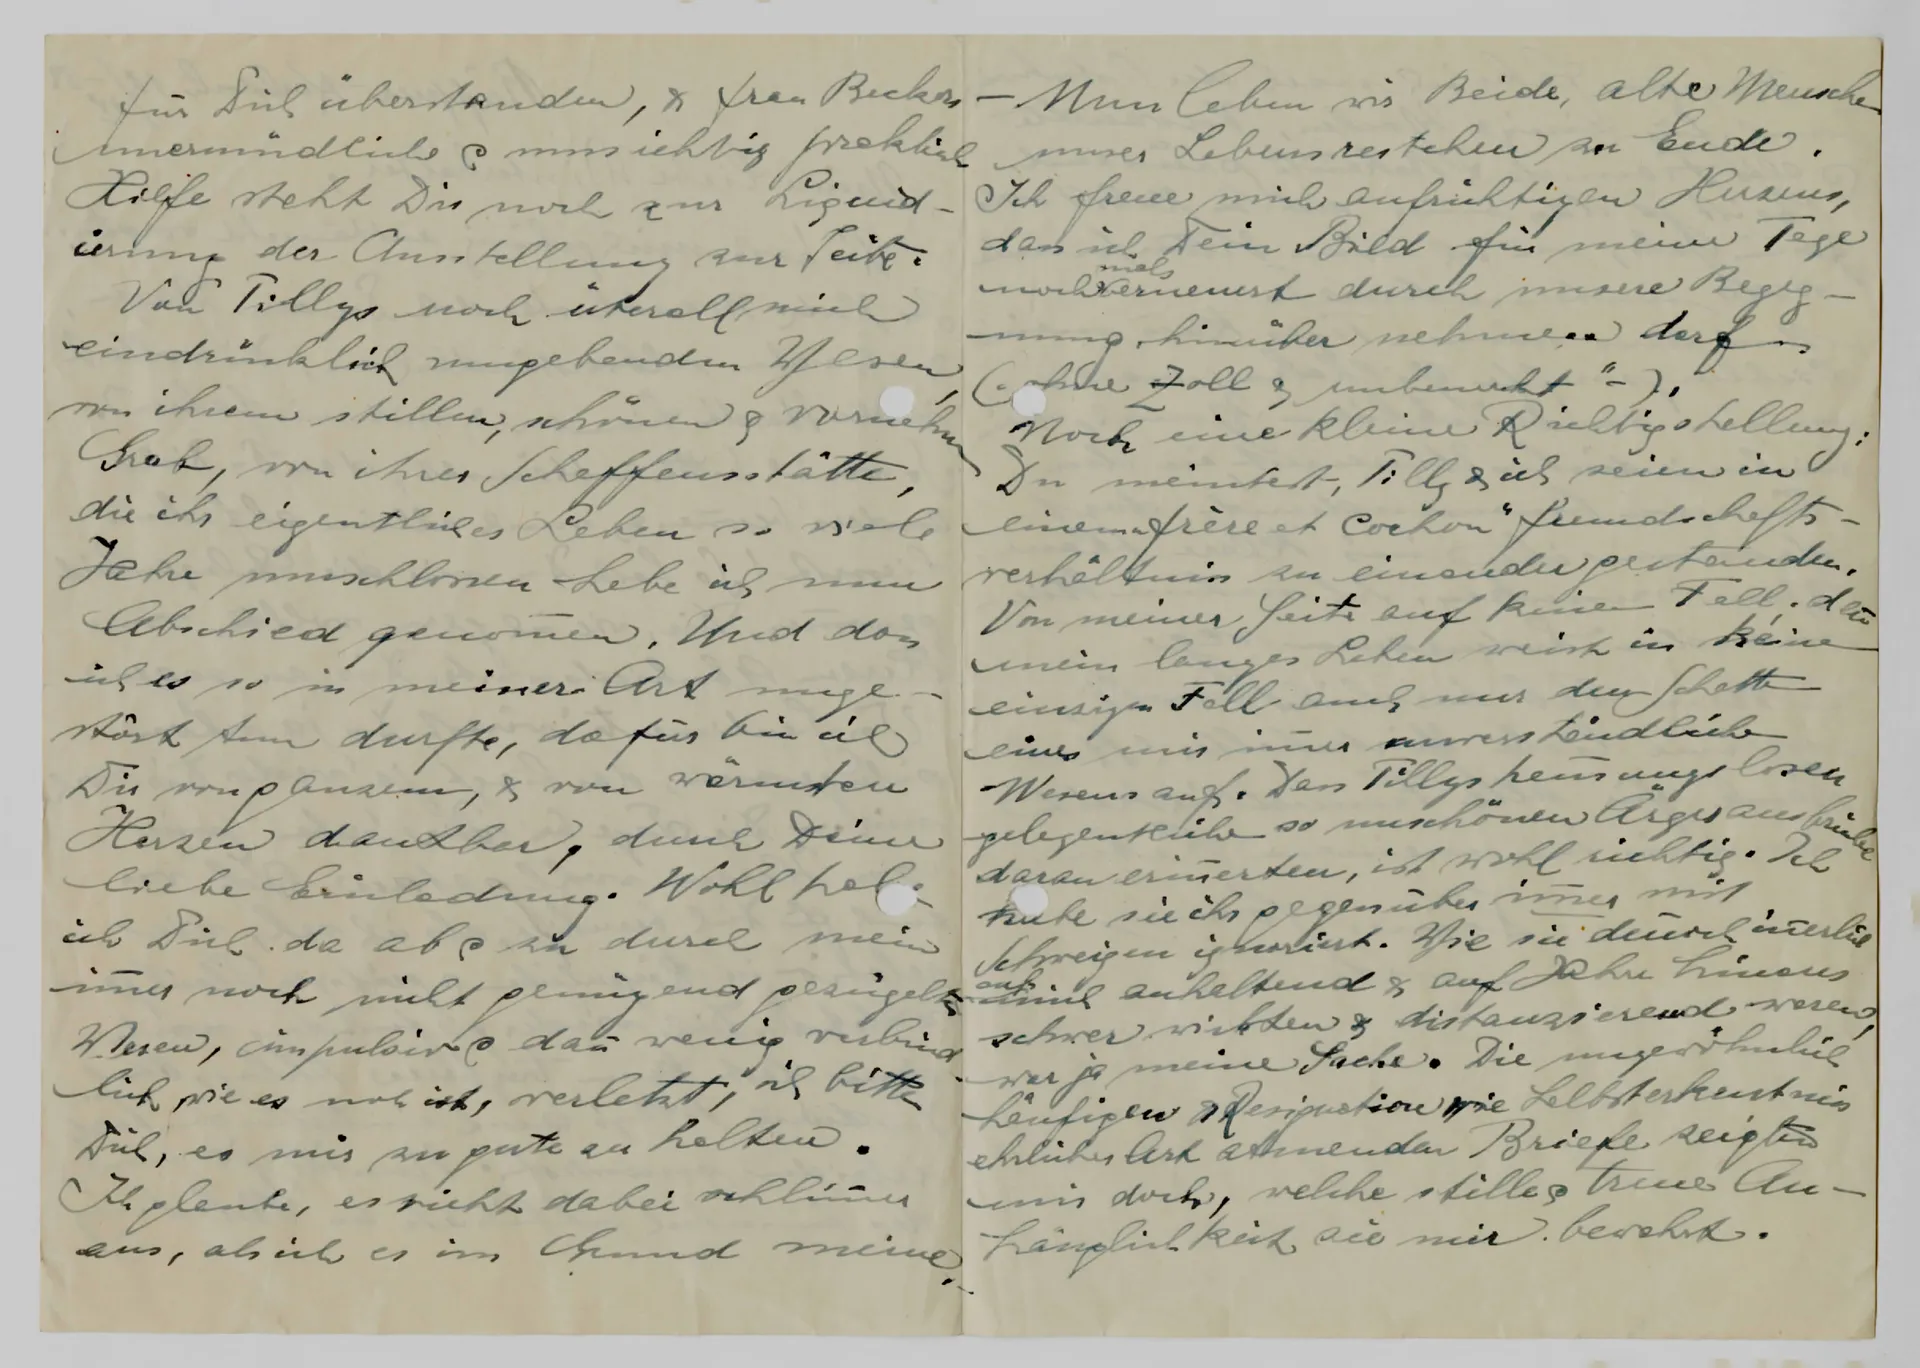 für Dich überstanden, & Frau Beckers
unermüdliche & umsichtig praktisch
Hilfe steht Dir noch zur Liquid-
ierung der Ausstellung zur Seite.
Von Tillys noch überall mich
eindrünklich umgebenden Wesen,
von ihrem stillen, schönen & vornehm
Grab, von ihrer Schaffensstätte,
die ihr eigentliches Leben so viele
Jahre umschlossen habe ich nun
Abschied genom̄en. Und dass
ich es so in meiner Art unge-
stört tun durfte, dafür bin ich
Dir von ganzem, & von wärmsten
Herzen dankbar, durch Deine
liebe Einladung. Wohl habe
ich Dich da ab & zu durch mein
im̄er noch nicht genügend gezügeltes
Wesen, impulsiv & dan̄ wenig verbind
lich wie es noch ist, verletzt, ich bitte
Dich, es mir zu gute zu halten.
Ich glaube, es sieht dabei schlim̄er
aus, als ich es im Grund meine.–
– Nun leben wir Beide, alte Mensche
unser Lebensrestchen zu Ende.
Ich freue mich aufrichtigen Herzens,
dass ich Dein Bild für meine Tage
nochmals erneuert durch unsere Begeg-
nung hinüber nehmen darf
(„ohne Zoll & unbemerkt“ –).
Noch eine kleine Richtigstellung:
Du meintest, Tilly & ich seien in
einem „frère et cochon“ freundschafts-
verhältnis zu einander gestanden.
Von meiner Seite auf keinen Fall, den̄
mein langes Leben weist in keine
einzigen Fall auch nur den Schatte
eines mir im̄er unverständliche
Wesens auf. Dass Tillys hem̄ungslosen
gelegentliche so unschönen Ärgerausbrüche
daran erin̄erten, ist wohl richtig. Ich
habe sie ihr gegenüber im̄er mit
Schweigen ignoriert. Wie sie den̄och in̄erlich
auf mich anhaltend & auf Jahre hinaus
schwer wirkten & distanzierend waren,
war ja meine Sache. Die ungewöhnlich
häufigen Resignation wie Selbsterkentnis
ehrlicher Art atmenden Briefe zeigten
mir doch, welche stille & treue An-
hänglichkeit sie mir bewahrt.